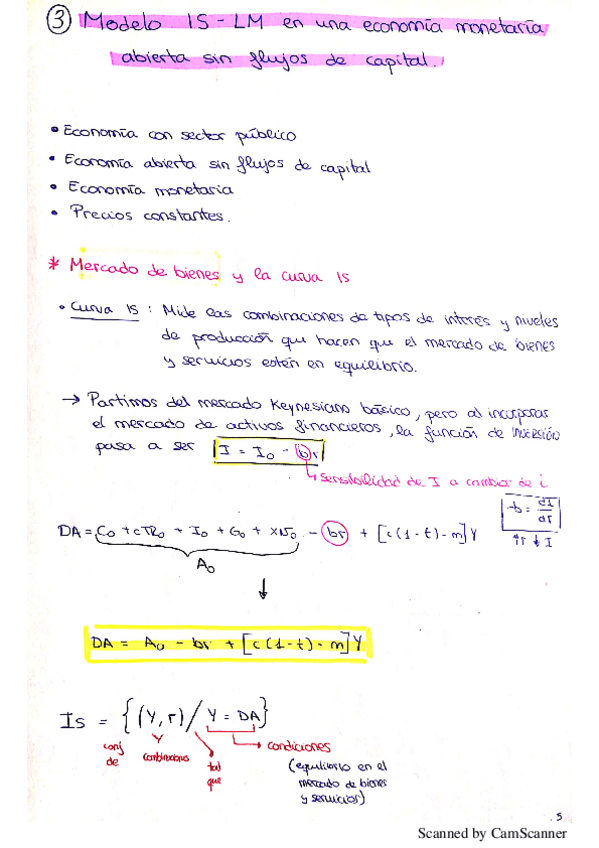 ③ Modelo IS-LM en una economía monetaria
abierta sin flujos de capital.
• Economía con sector público
• Economía abierta sin flujos de capital
• Economía monetaria
• Precios constantes.
* Mercado de bienes y la curva IS
• Curva IS : Mide las combinaciones de tipos de interés y niveles
de producción que hacen que el mercado de bienes
y servicios estén en equilibrio.
→ Partimos del mercado Keynesiano básico, pero al incorporar
el mercado de activos financieros, la función de inversión
pasa a ser I = I₀ - br
↳ sensibilidad de I a cambios de i
-b = dI/dr
↑r ↓ I
DA = C₀ + cTR₀ + I₀ + G₀ + XN₀ - br + [c(1-t)-m]Y
A₀
↓
DA = A₀ - br + [c(1-t)-m]Y
IS = {(Y, r) / Y = DA}
conj de
combinaciones
tal que
condiciones
(equilibrio en el
mercado de bienes
y servicios)
. 5
Scanned by CamScanner